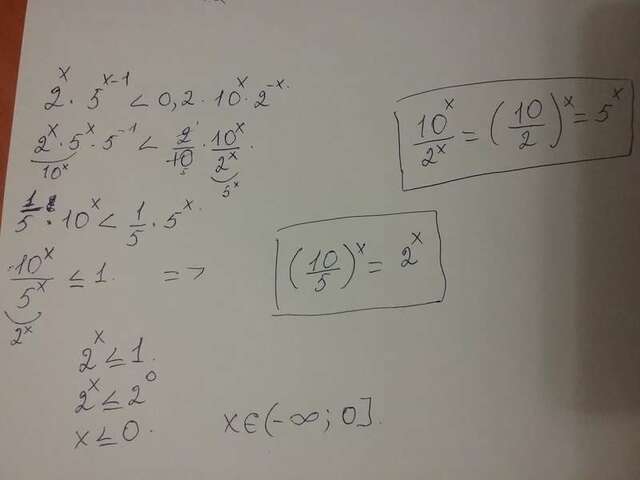 2^x · 5^(x-1) < 0,2 · 10^x · 2^(-x).
2^x · 5^x · 5^(-1) < 2/10 · 10^x/2^x.
10^x
5^x
1/5 · 10^x < 1/5 · 5^x.
10^x/5^x ≤ 1. =>
2^x
2^x ≤ 1.
2^x ≤ 2^0
x ≤ 0. x∈(-∞; 0].
10^x/2^x = (10/2)^x = 5^x
(10/5)^x = 2^x